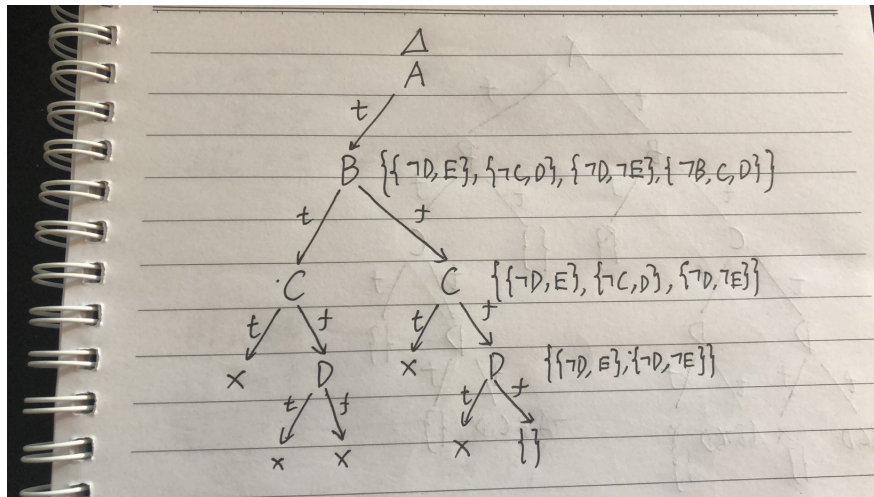 Δ
A
t
B {{¬D,E},{¬C,D},{¬D,¬E},{¬B,C,D}}
t f
C C {{¬D,E},{¬C,D},{¬D,¬E}}
t f t f
x D x D {{¬D,E},{¬D,¬E}}
t f t f
x x x {}